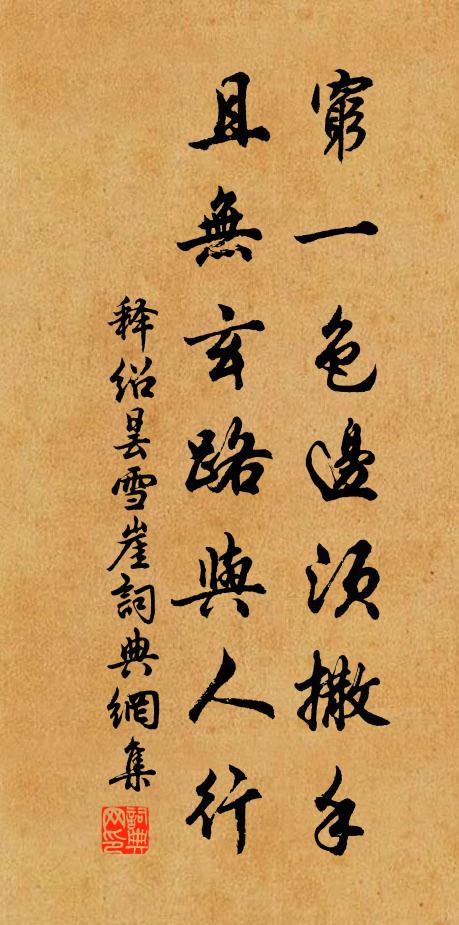 窮一色邊須撒手
且無玄路與人行
释紹曇雪崖詞典網集
詞典網印